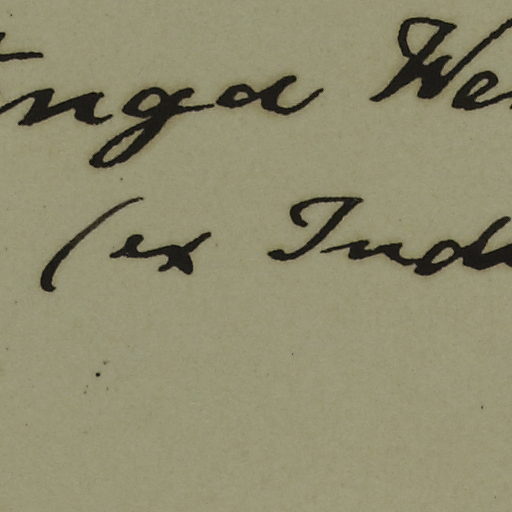 inga We
(ex Ind